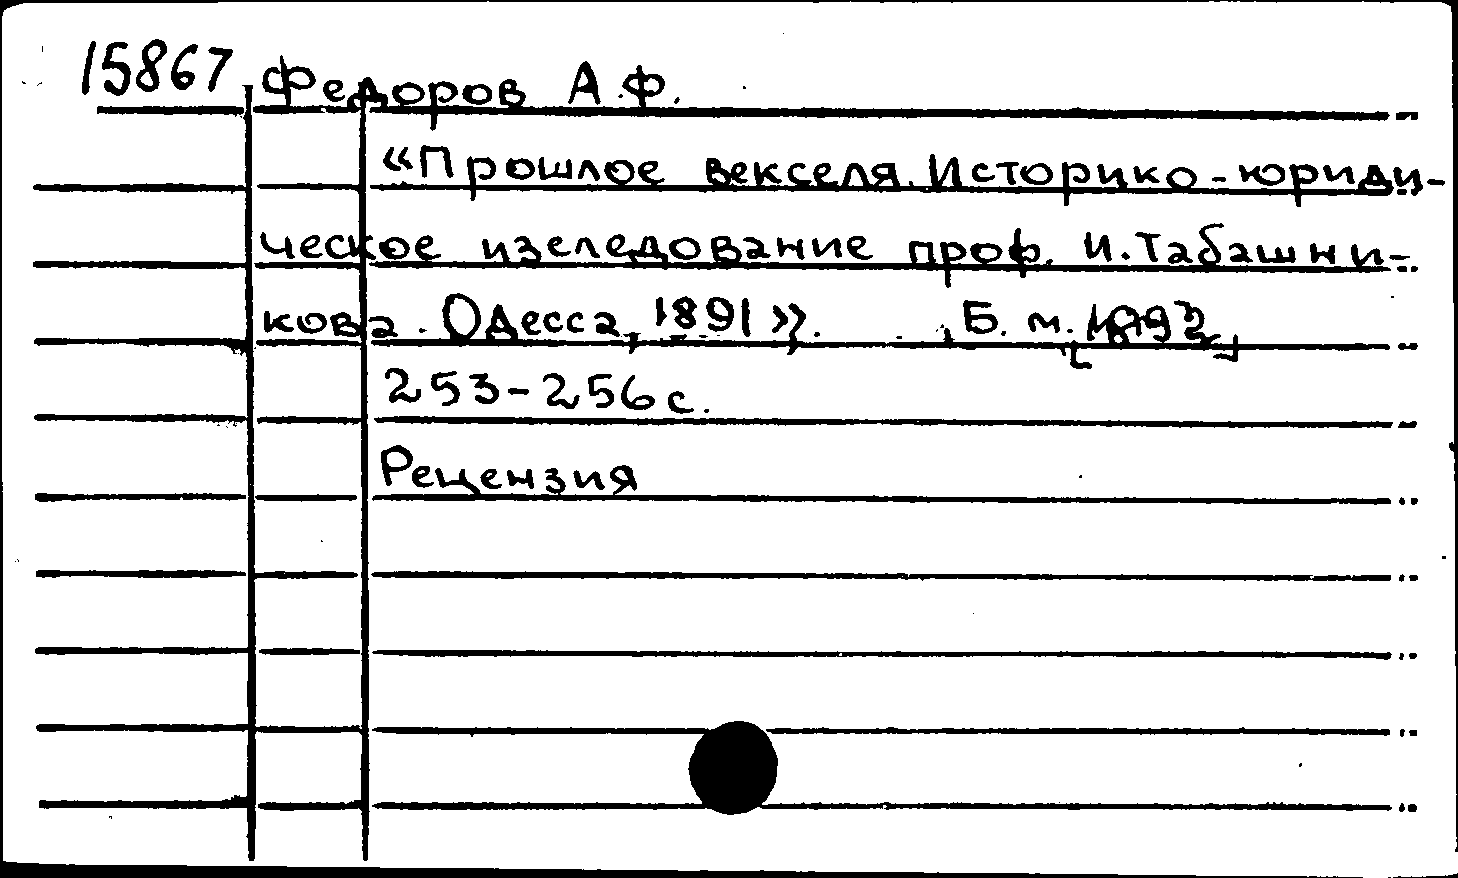 15867 Федоров А.Ф.
«Прошлое векселя. Историко-юриди-
ческое изеледование проф. И. Табашни-
кова. Одесса, 1891». Б. м.
253-256 с.
Рецензия